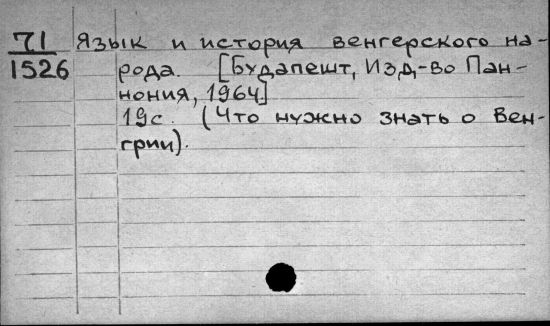 71 Язык и история венгерского на-
1526 рода. [Будапешт, Изд-во Пан-
нония, 1964]
19с. (Что нужно знать о Вен-
грии).